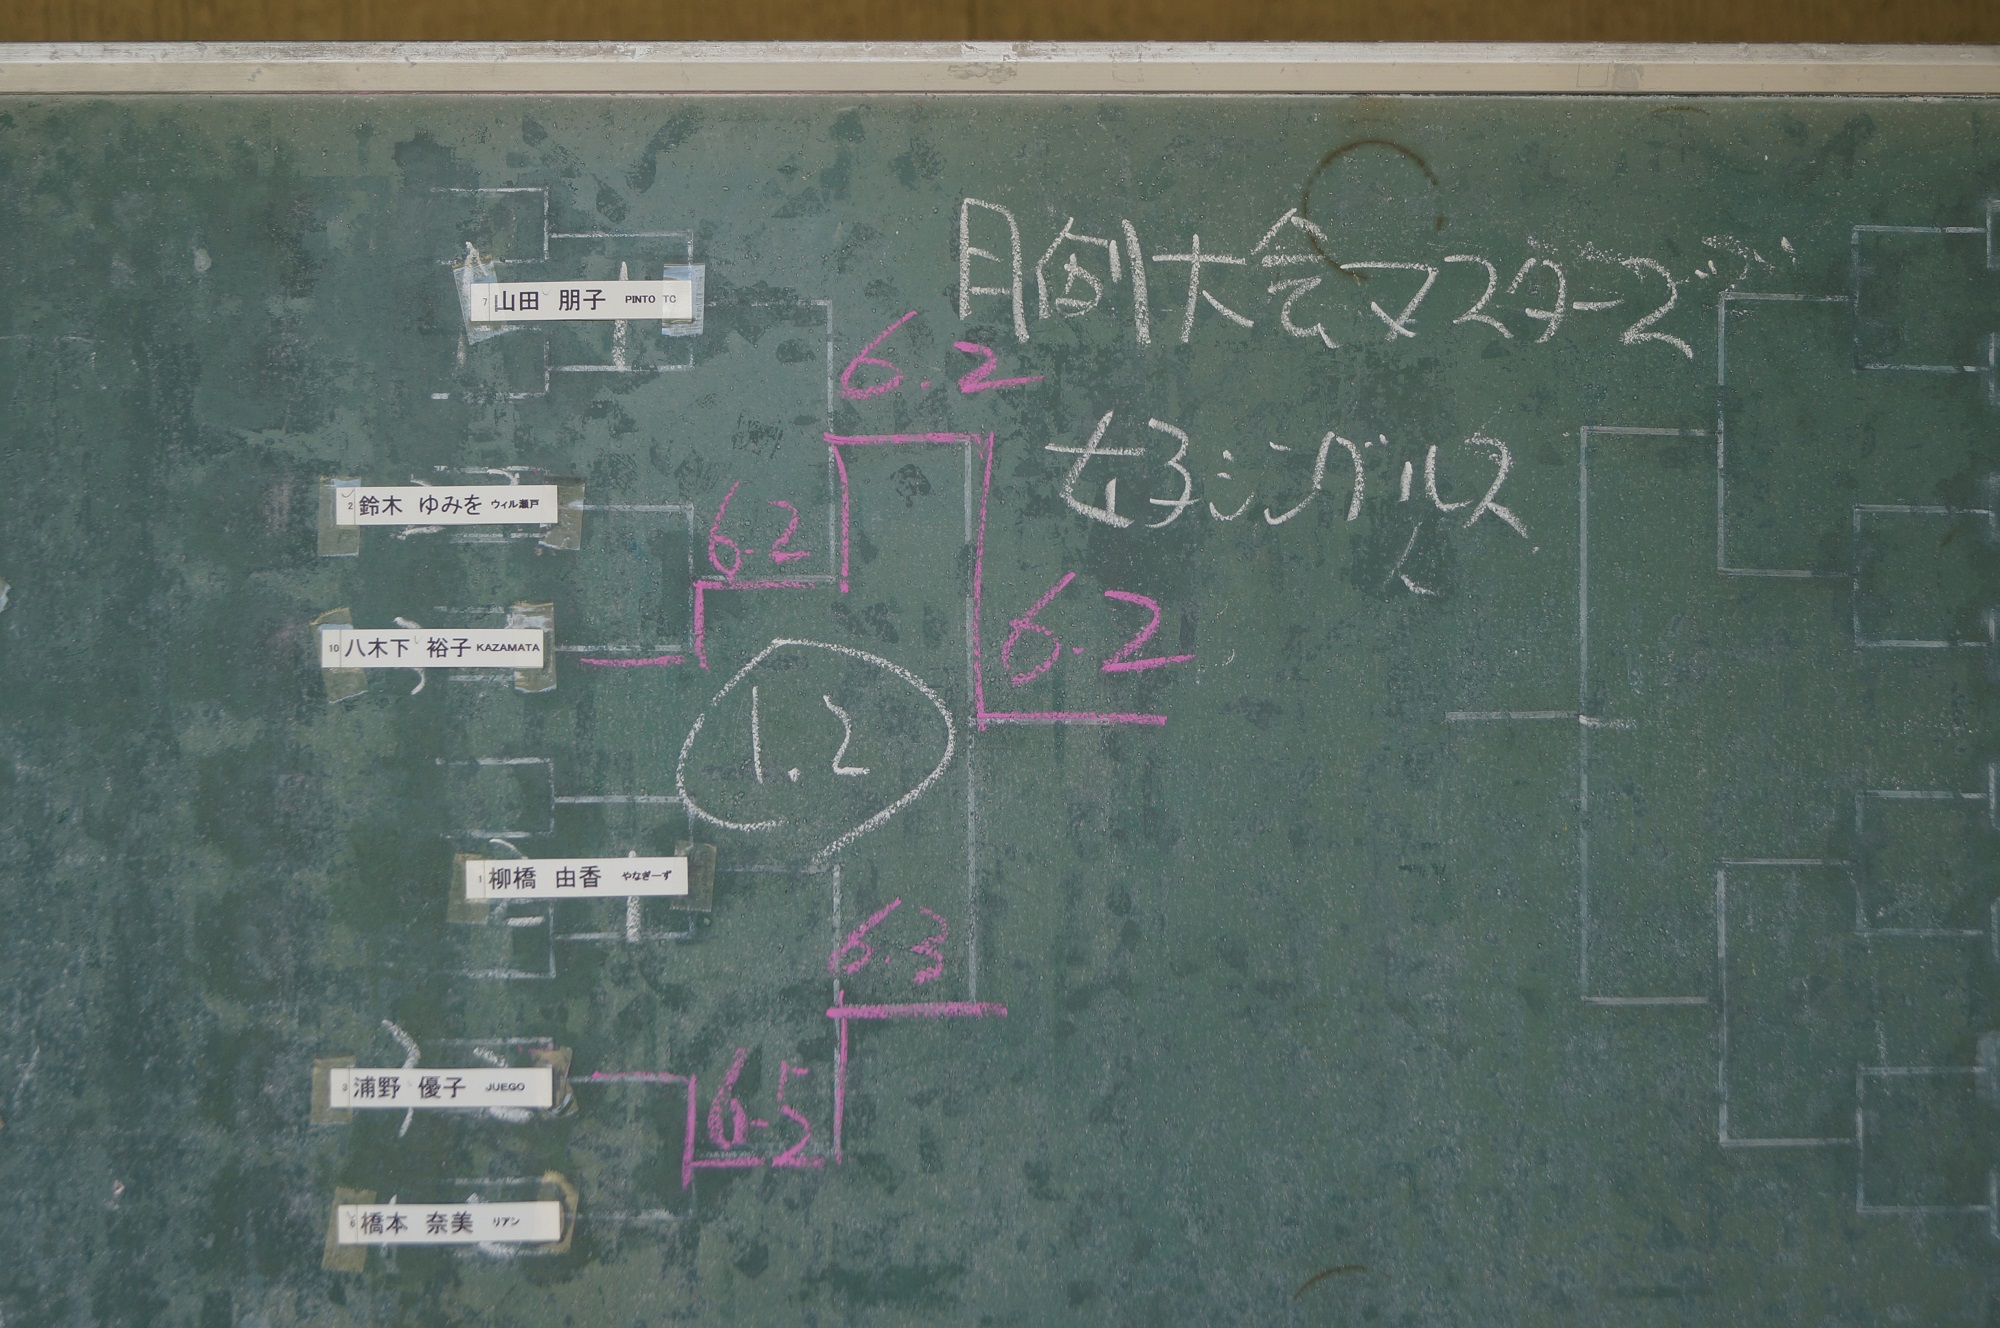 月例大会マスターズ
女子シングルス
7 山田 朋子 PINTO TC
6.2
2 鈴木 ゆみを ウィル瀬戸
6-2
10 八木下 裕子 KAZAMATA
6.2
1.2
1 柳橋 由香 やなぎーず
6.3
3 浦野 優子 JUEGO
6-5
6 橋本 奈美 リアン